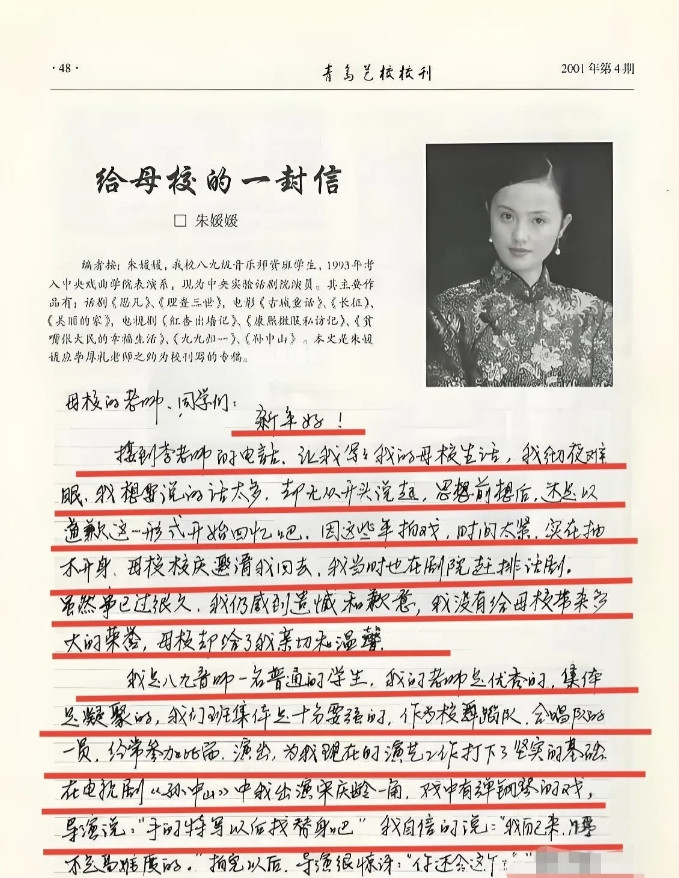 ·48·
青岛艺校校刊
2001年第4期
给母校的一封信
□ 朱媛媛
编者按：朱媛媛，我校八九级音乐师资班学生，1993年考
入中央戏曲学院表演系，现为中央实验话剧院演员。其主要作
品有：话剧《思凡》、《理查三世》，电影《古城童话》、《长征》、
《美丽的家》，电视剧《红杏出墙记》、《康熙微服私访记》、《贫
嘴张大民的幸福生活》、《九九归一》、《孙中山》。本文是朱媛
媛应李厚礼老师之约为校刊写的专稿。
母校的老师、同学们：
新年好！
接到李老师的电话，让我写写我的母校生活，我彻夜难
眠，我想要说的话太多，却无从开头说起，思想前想后，还是以
道歉这一形式开始回忆吧，因这些年拍戏，时间太紧，实在抽
不开身，母校校庆邀请我回去，我当时也在剧院赶排话剧。
虽然事已过很久，我仍感到遗憾和歉意，我没有给母校带来多
大的荣誉，母校却给了我亲切和温馨。
我是八九音师一名普通的学生，我的老师是优秀的，集体
是凝聚的，我们班集体是十分要强的，作为校舞蹈队、合唱队的
一员，经常参加比赛、演出，为我现在的演艺工作打下了坚实的基础
在电视剧《孙中山》中我出演宋庆龄一角，戏中有弹钢琴的戏，
导演说："手的特写以后找替身吧"我自信的说："我自己来，
不是高难度的。"拍完以后，导演很惊讶："你还会这个？"